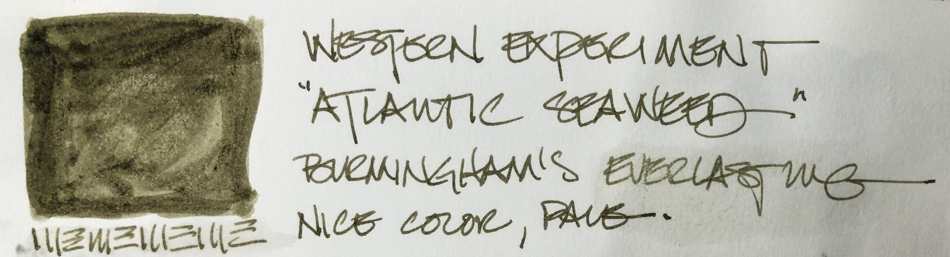 WESTERN EXPERIMENT
"ATLANTIC SEAWEED"
BURMINGHAM'S EVERLASTING
NICE COLOR, PALE.